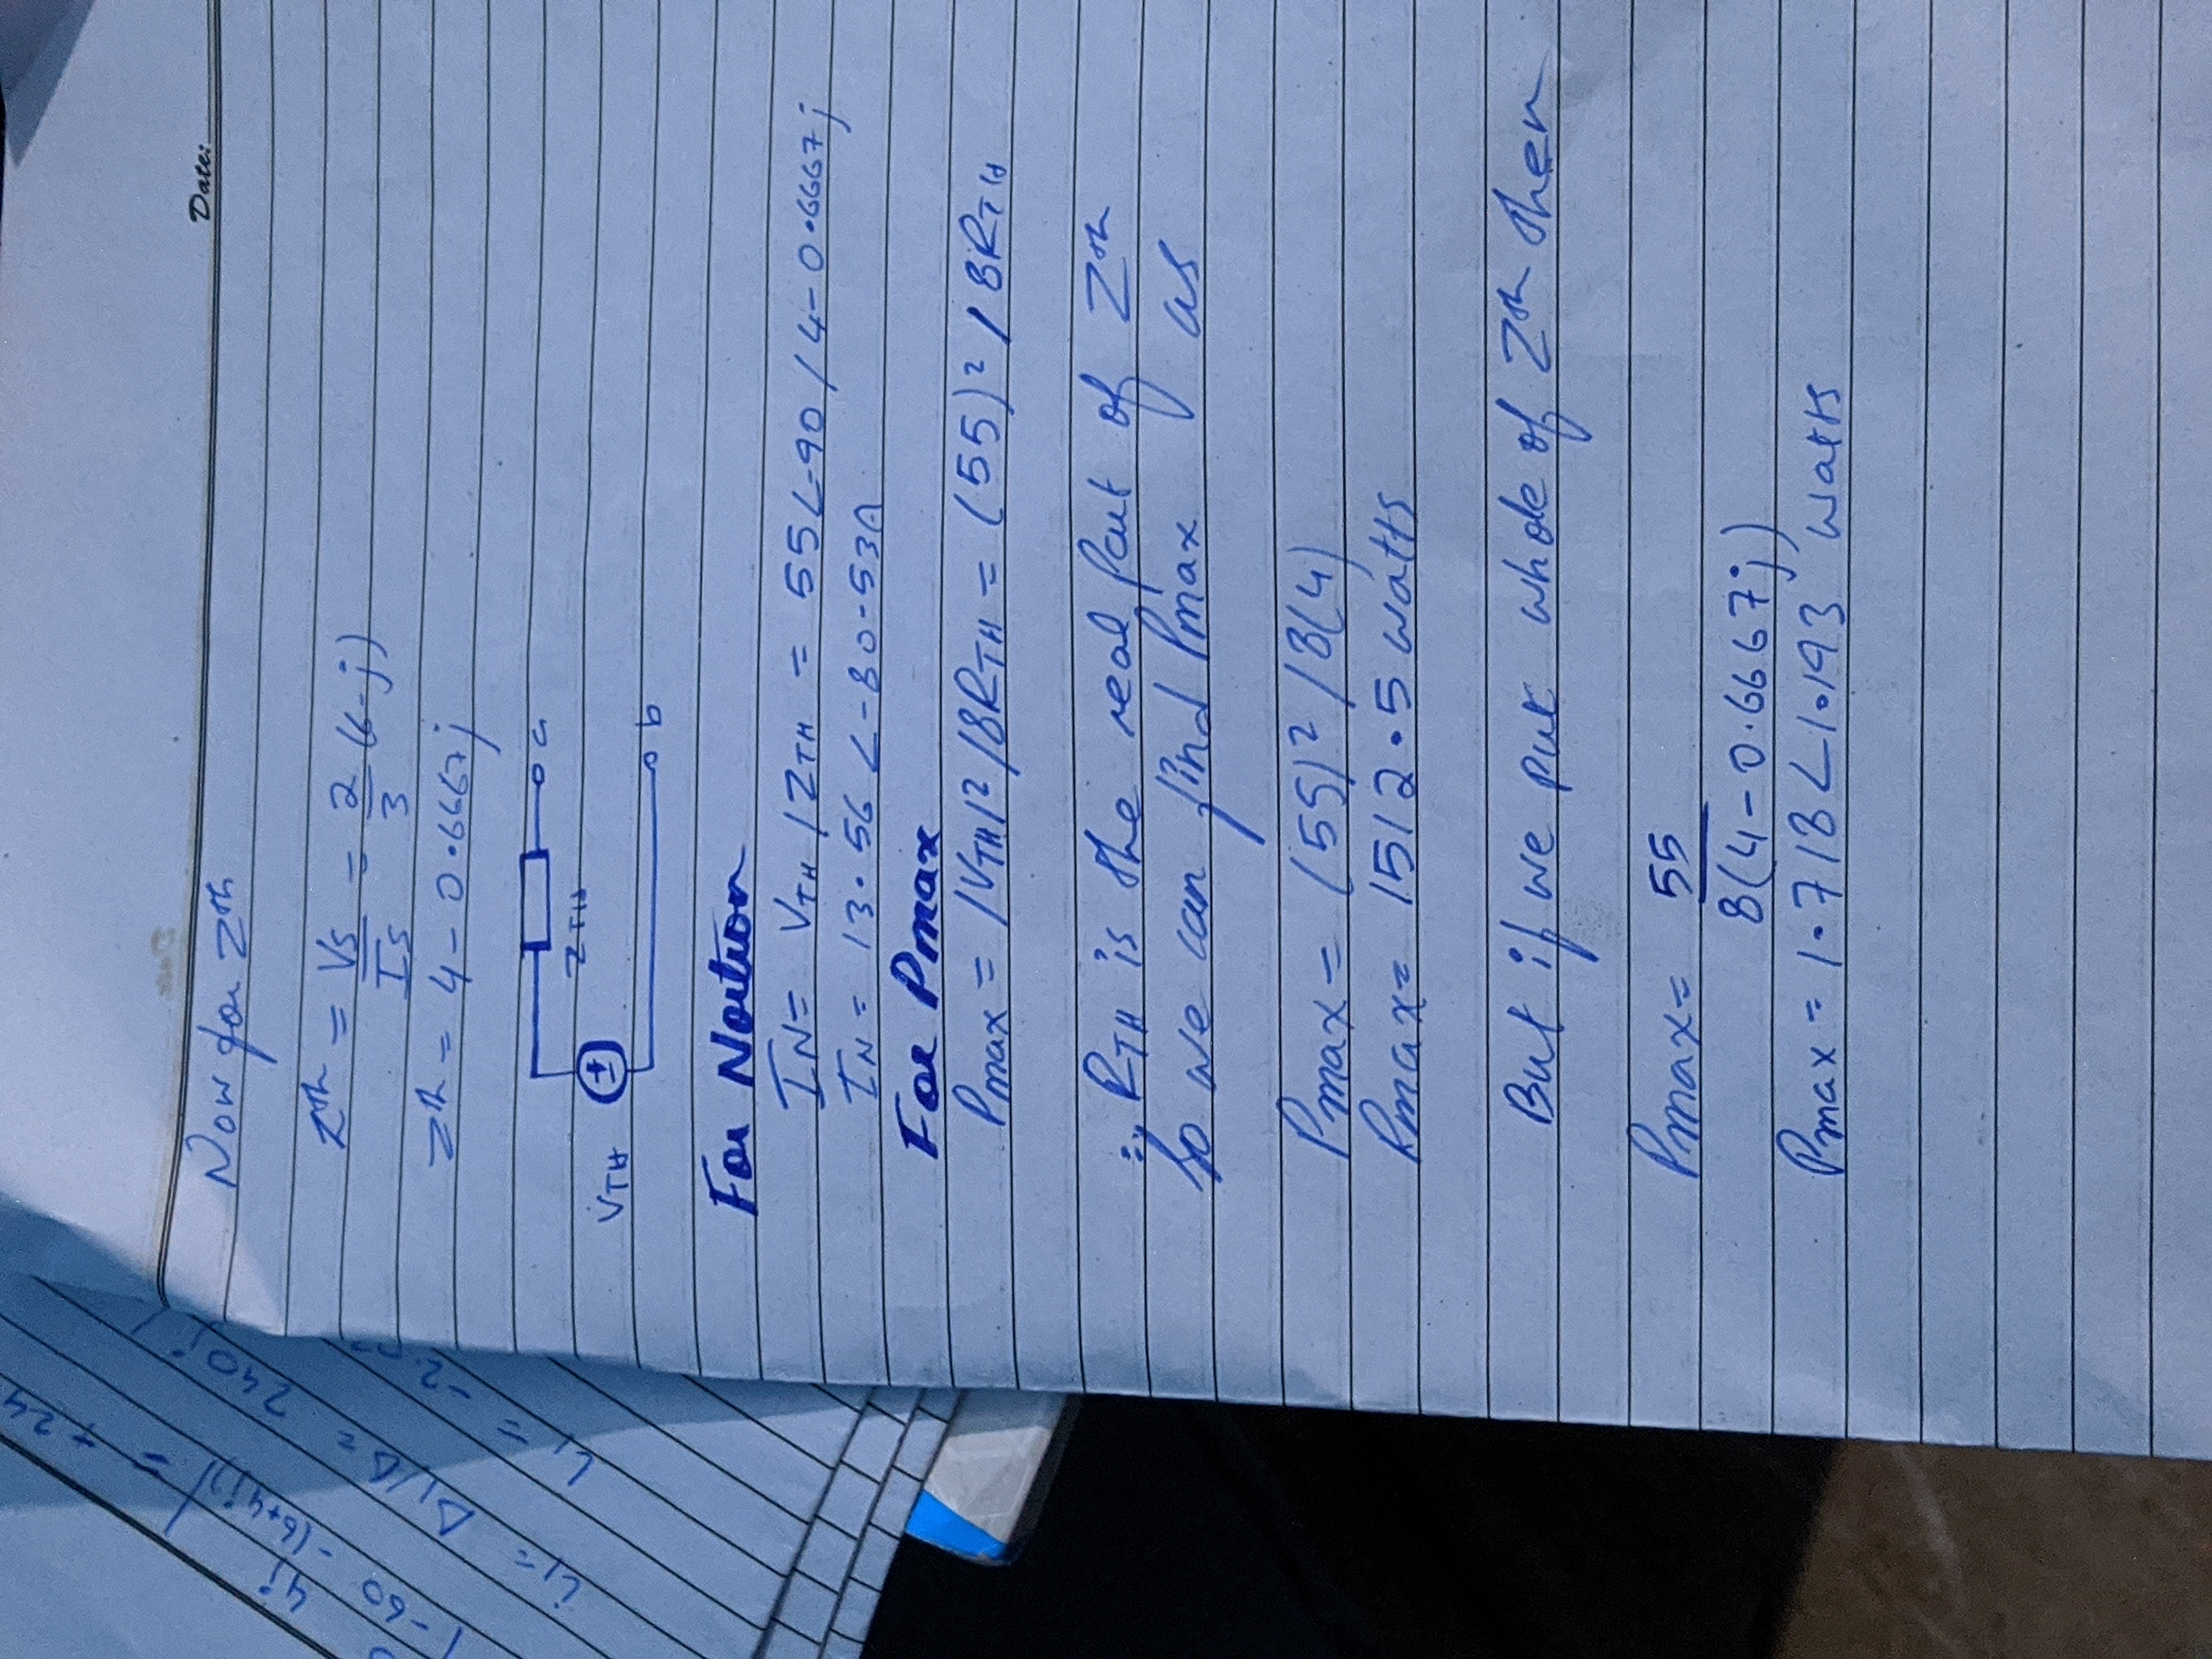 Date:
Now for Zth
Zth = Vs/Is = 2/3 (6-j)
Zth = 4 - 0.6667j
VTH ZTH a b
For Norton
IN = VTH / ZTH = 55∠-90 / 4-0.6667j
IN = 13.56 ∠-80.53A
For Pmax
Pmax = |VTH|² / 8RTH = (55)² / 8RTH
∵ RTH is the real part of Zth
So we can find Pmax as
Pmax = (55)² / 8(4)
Pmax = 1512.5 watts
But if we put whole of Zth then
Pmax = 55 / 8(4-0.6667j)
Pmax = 1.718∠1.193 watts
4j
-60 -(6+4j) = +24
i1 = Δ1/Δ = 240j /
i1 = -2.0